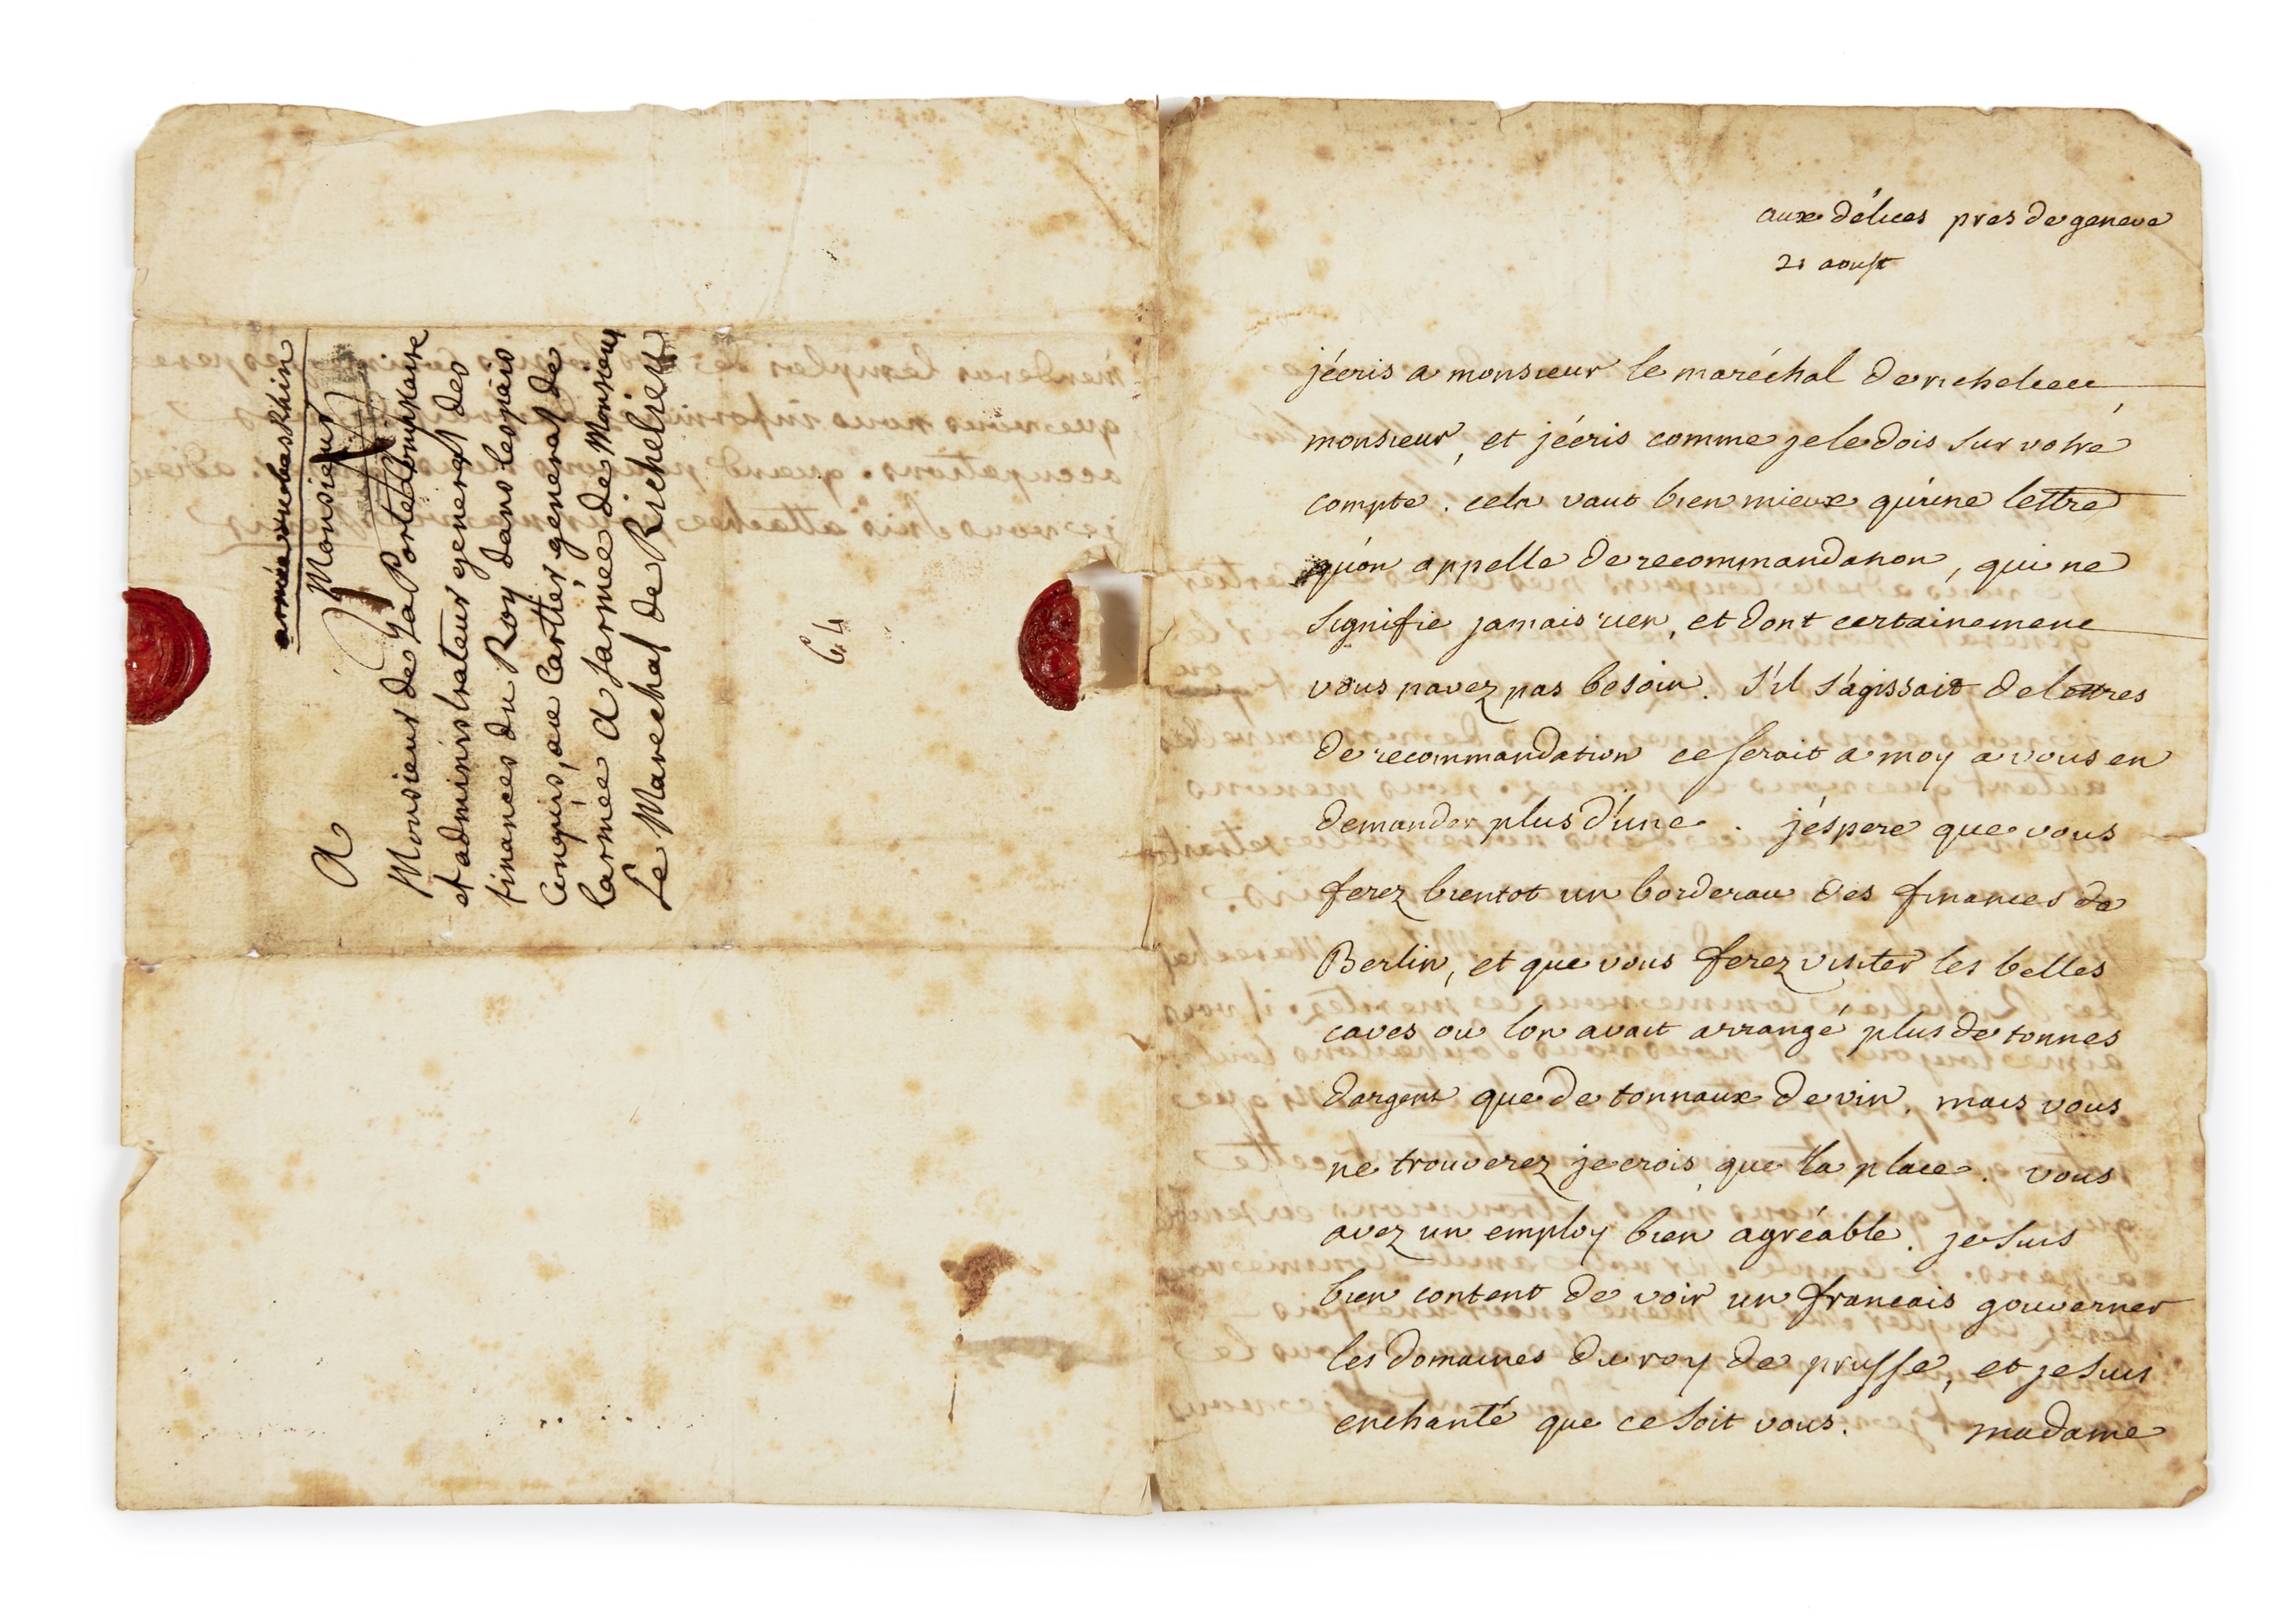 armée du bas Rhin
A Monsieur
Monsieur de la Porte Commissaire
et administrateur general des
finances du Roy dans les païs
Conquis, au Cartier general de
larmée A larmée de Monsieur
Le Marechal de Richelieu
64
aux délices pres de geneve
21 aoust
j'écris a monsieur le maréchal de richelieu
monsieur, et j'écris comme je le dois sur votre
compte. cela vaut bien mieux qu'une lettre
qu'on appelle de recommandation, qui ne
signifie jamais rien, et dont certainement
vous navez pas besoin. s'il s'agissait de lettres
de recommandation ce serait a moy a vous en
demander plus d'une. j'espere que vous
ferez bientot un borderau des finances de
Berlin, et que vous ferez visiter les belles
caves ou lon avait arrangé plus de tonnes
dargent que de tonnaux de vin. mais vous
ne trouverez je crois que la place. vous
avez un employ bien agréable. je suis
bien content de voir un francais gouverner
les domaines du roy de prusse, et je suis
enchanté que ce soit vous. madame